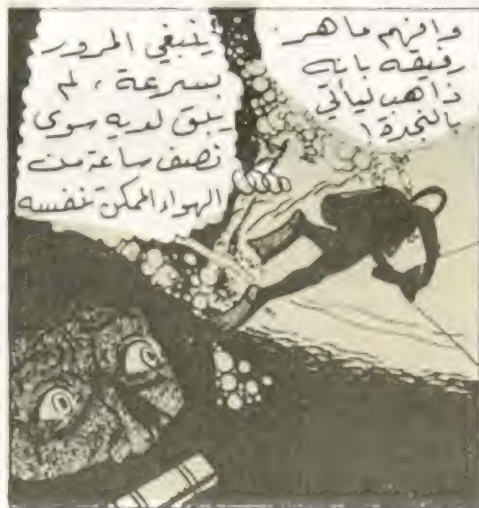 وافهم ماهر
رفيقه بانه
ذاهب ليأتي
بالنجدة!
ينبغي المرور
بسرعة، لم
يبق لديه سوى
نصف ساعة من
الهواء الممكن تنفسه